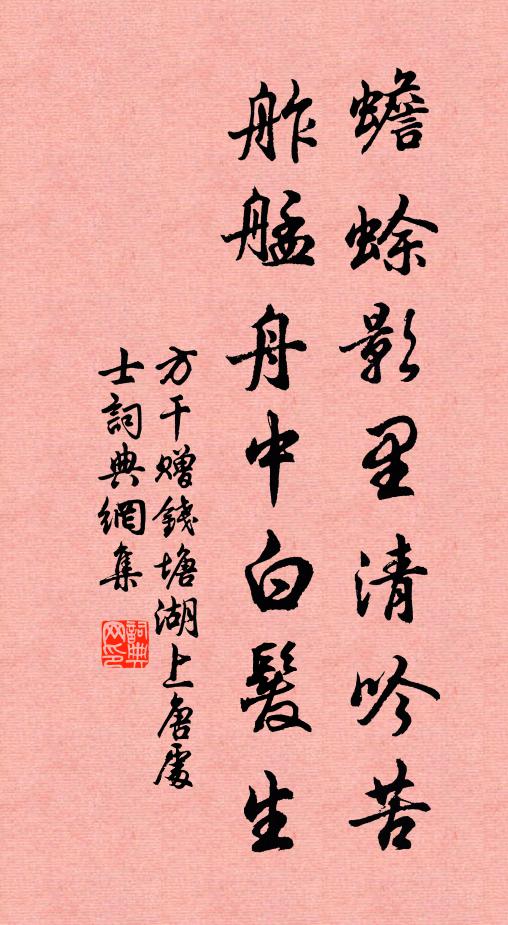 蟾蜍影里清吟苦
舴艋舟中白髮生
方干贈錢塘湖上唐處
士詞典網集
詞典网印